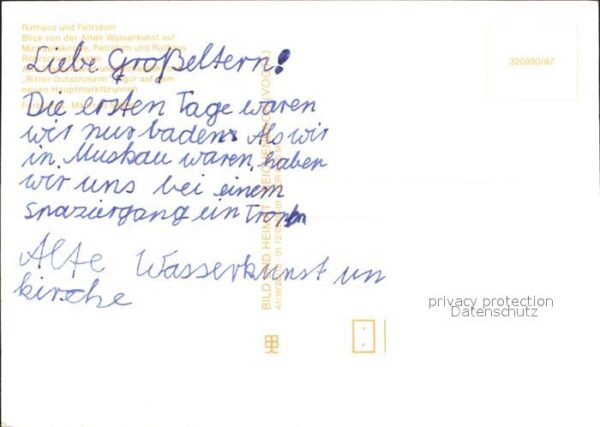 Rathaus und Petridom
Blick von der Alten Wasserkunst auf
Petridom und Rathaus
"Ritter Dutschmann"
neuen Hauptmarktbrunnen
320990/87
Liebe Großeltern!
Die ersten Tage waren
wir nur baden. Als wir
in Muskau waren, haben
wir uns bei einem
Spaziergang ein
Alte Wasserkunst un
kirche
BILD UND HEIMAT REICHENBACH (VOGTL)
privacy protection
Datenschutz